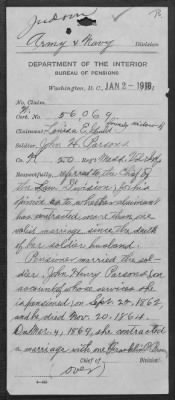 Army & Navy Division
DEPARTMENT OF THE INTERIOR
BUREAU OF PENSIONS
Washington, D. C. JAN 2 - 1918,
No. Claim,
W. Cert. No. 56,069
Claimant, Louisa E.
Soldier, John H. Parsons
Co. K 50 Reg't Mass. Vol. Inf.
Respectfully referred to the Chief of
the Law Division for his
opinion as to whether claimant
has contracted more than one
valid marriage since the death
of her soldier husband.
Pensioner married the sol-
dier, John Henry Parsons, on
account of whose services she
is pensioned, on Sept. 22, 1862,
and he died Nov. 20, 1864.
4, 1869, she contracted
a marriage with one Franklin P.
Chief of Division.
(over)